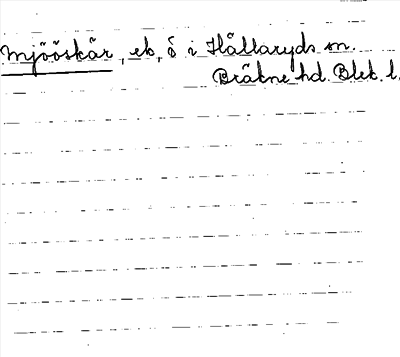 Mjööskär, ek, ö i Hällaryds sn.
Bräkne hd. Blek. l.